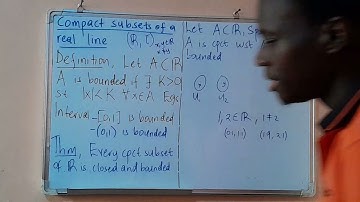 Compact subsets of a
real line (ℝ, τ) x,y∈ℝ
x≠y
Definition. Let A⊂ℝ
A is bounded if ∃ K>0
st |x|<K ∀x∈A Egs
Interval -[0,1] is bounded
-(0,1) is bounded
Thm, Every cpct subset
of ℝ is closed and bounded
Let A⊂ℝ,
A is cpct wst A
bounded
U₁ U₂
1,2∈ℝ, 1≠2
(1.9, 2.1)